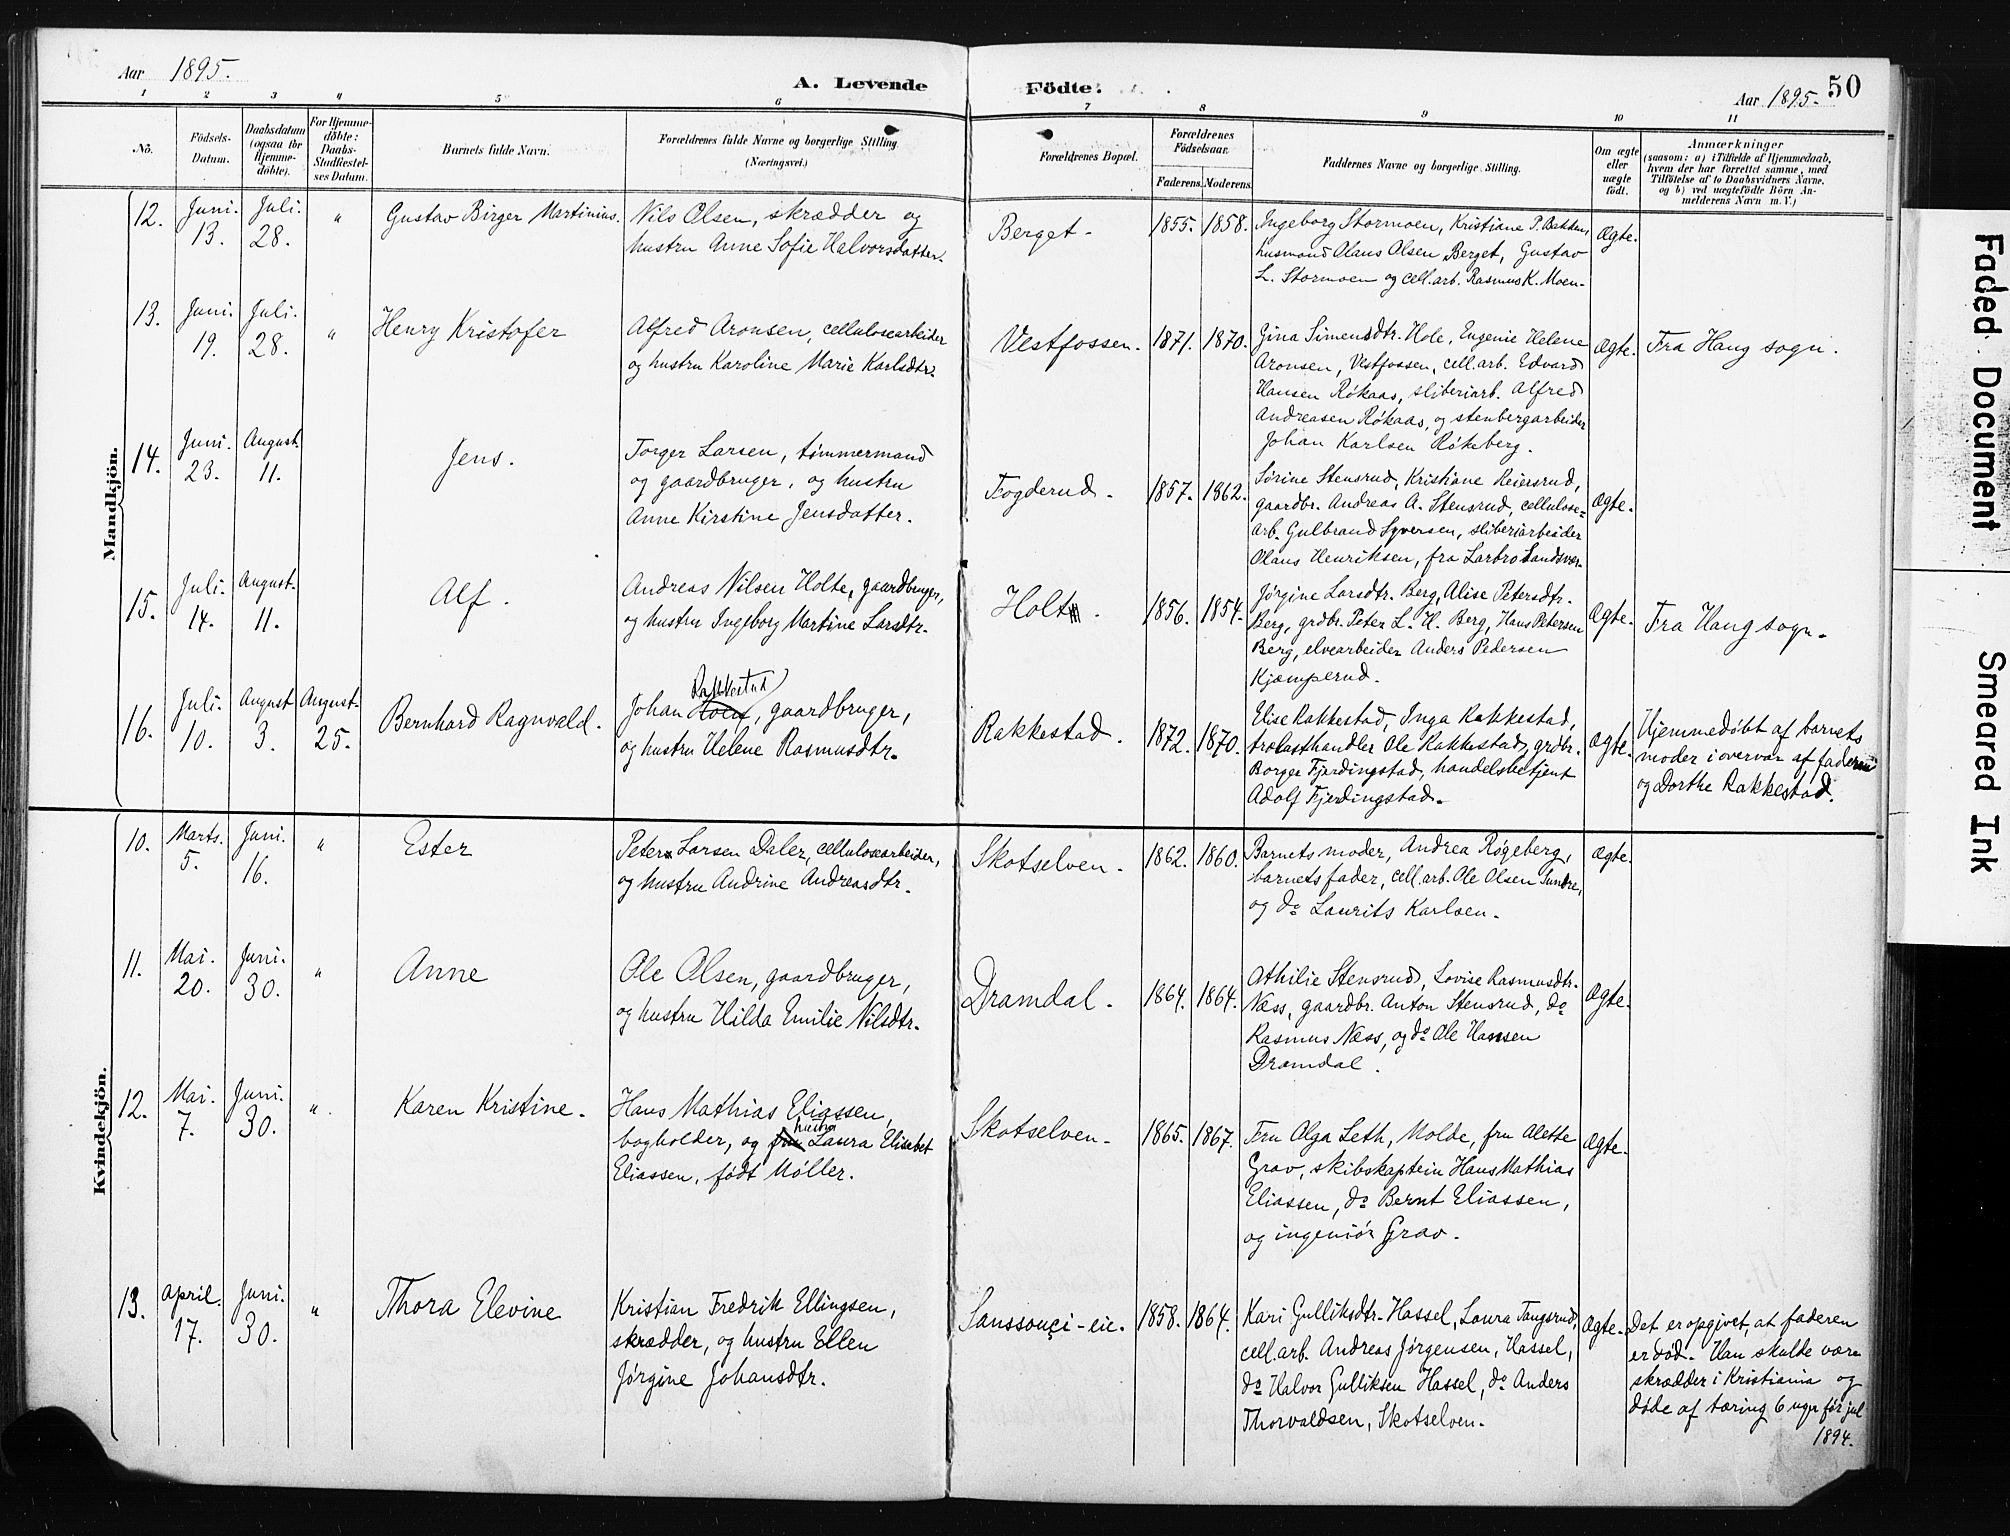 Aar 1895.
A. Levende
Födte:
Aar 1895.
50
1 2 3 4 5 6 7 8 9 10 11
No.
Födsels-
Datum.
Daabsdatum
(ogsaa for
Hjemme-
döbte).
For Hjemme-
döbte:
Daabs-
Stadfæstel-
ses Datum.
Barnets fulde Navn.
Forældrenes fulde Navne og borgerlige Stilling
(Næringsvei.)
Forældrenes Bopæl.
Forældrenes
Födselsaar.
Faderens. Moderens.
Faddernes Navne og borgerlige Stilling.
Om ægte
eller
uægte
födt.
Anmærkninger
(saasom: a) i Tilfælde af Hjemmedaab,
hvem der har forrettet samme, med
Tilföielse af to Daabsvidners Navne.
og b) ved uægtefödte Börn An-
melderens Navn m. V.)
Mandkjön.
12.
Juni.
13.
Juli.
28.
"
Gustav Birger Martinius.
Nils Olsen, skrædder og
hustru Anne Sofie Halvorsdatter.
Berget.
1855. 1858.
Ingeborg Stormoen, Kristiane P. Bakken,
husmand Olaus Olsen Berget, Gustav
L. Stormoen og cell.arb. Rasmus K. Moen.
Ægte.
13.
Juni.
19.
Juli.
28.
"
Henry Kristofer
Alfred Aronsen, cellulosearbeider
og hustru Karoline Marie Karlsdtr.
Vestfossen.
1871. 1870.
Gina Simensdtr. Hole, Eugenie Helene
Aronsen, Vestfossen, cell.arb. Edvard
Hansen Røkaas, sliberiarb. Alfred
Andreasen Røkaas, og stenbergarbeider
Johan Karlsen Røkeberg.
Ægte.
Fra Haug sogn.
14.
Juni.
23.
August.
11.
Jens.
Torger Larsen, tømmermand
og gaardbruger, og hustru
Anne Kirstine Jensdatter.
Fogderud.
1857. 1862.
Sørine Stensrud, Kristiane Reiersrud,
gaardbr. Andreas A. Stensrud, cellulose-
arb. Gulbrand Syversen, sliberiarbeider
Olaus Henriksen, fra Larbro Sandsvær.
Ægte.
15.
Juli.
14.
August.
11.
Alf.
Andreas Nilsen Holte, gaardbruger,
og hustru Ingeborg Martine Larsdtr.
Holt.
1856. 1854.
Jørgine Larsdtr. Berg, Alise Petersdtr.
Berg, grdbr. Peter L. H. Berg, Hans Petersen
Berg, elvearbeider Anders Pedersen
Kjæmperud.
Ægte.
Fra Haug sogn.
16.
Juli.
10.
August
3.
August.
25.
Bernhard Ragnvald.
Rakkestad
Johan Hoen, gaardbruger,
og hustru Helene Rasmusdtr.
Rakkestad.
1872. 1870.
Elise Rakkestad, Inga Rakkestad,
trælasthandler Ole Rakkestad, grdbr.
Borger Fjerdingstad, handelsbetjent
Adolf Fjerdingstad.
Ægte.
Hjemmedøbt af barnets
moder i overvær af faderen
og Dorthe Rakkestad.
Kvindekjön.
10.
Marts.
5.
Juni.
16.
"
Ester
Peter Larsen Daler, cellulosearbeider,
og hustru Andrine Andreasdtr.
Skotselven.
1862. 1860.
Barnets moder, Andrea Røgeberg,
barnets fader, cell.arb. Ole Olsen Sundre,
og do Laurits Karlsen.
Ægte.
11.
Mai.
20.
Juni.
30.
"
Anne
Ole Olsen, gaardbruger,
og hustru Hilda Emilie Nilsdtr.
Dramdal.
1864. 1864.
Athilie Stensrud, Lovise Rasmusdtr.
Næss, gaardbr. Anton Stensrud, do
Rasmus Næss, og do Ole Hansen
Dramdal.
Ægte.
12.
Mai.
7.
Juni.
30.
"
Karen Kristine.
Hans Mathias Eliassen,
hustru
bogholder, og fru Laura Elisabet
Eliassen, født Møller.
Skotselven.
1865. 1867.
Fru Olga Leth, Molde, fru Alette
Grav, skibskaptein Hans Mathias
Eliassen, do Bernt Eliassen,
og ingeniør Grav.
Ægte.
13.
April.
17.
Juni.
30.
"
Thora Elevine
Kristian Fredrik Ellingsen,
skrædder, og hustru Ellen
Jørgine Johansdtr.
Sanssouçi-eie.
1858. 1864.
Kari Gulliksdtr. Hassel, Laura Tangsrud,
cell.arb. Andreas Jørgensen, Hassel,
do Halvor Gulliksen Hassel, do Anders
Thorvaldsen, Skotselven.
Ægte.
Det er opgivet, at faderen
er død. Han skulde være
skrædder i Kristiania og
døde af tæring 6 uger før jul
1894.
Faded Document
Smeared Ink